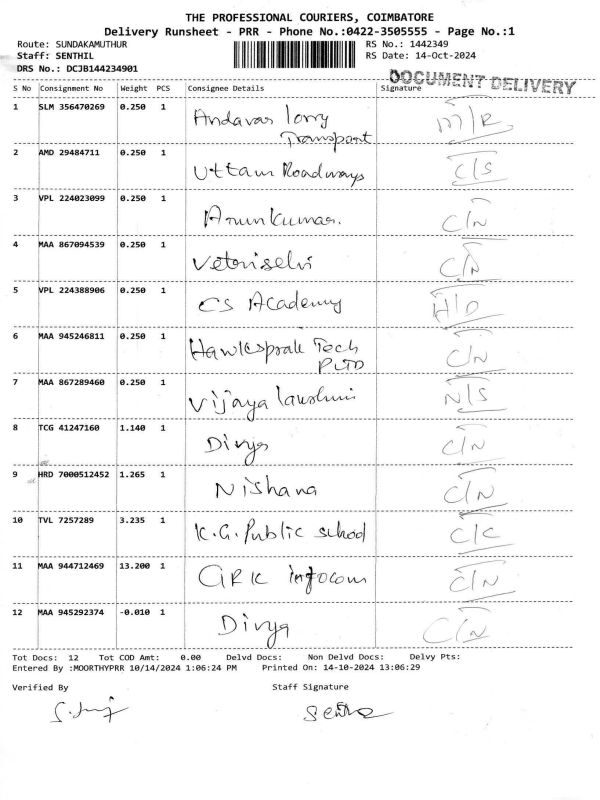 THE PROFESSIONAL COURIERS, COIMBATORE
Delivery Runsheet - PRR - Phone No.:0422-3505555 - Page No.:1
Route: SUNDAKAMUTHUR RS No.: 1442349
Staff: SENTHIL RS Date: 14-Oct-2024
DRS No.: DCJB144234901
DOCUMENT DELIVERY
S No Consignment No Weight PCS Consignee Details Signature
1 SLM 356470269 0.250 1 Andavar lorry M/R
Transport
2 AMD 29484711 0.250 1 Uttam Roadways C/S
3 VPL 224023099 0.250 1 Arunkumar. C/N
4 MAA 867094539 0.250 1 Vetriselvi C/N
5 VPL 224388906 0.250 1 CS Academy H/O
6 MAA 945246811 0.250 1 Tech C/N
7 MAA 867289460 0.250 1 Vijaya N/S
8 TCG 41247160 1.140 1 Divya C/N
9 HRD 7000512452 1.265 1 Nishana C/N
10 TVL 7257289 3.235 1 K.G. Public school C/C
11 MAA 944712469 13.200 1 GRK infocom C/N
12 MAA 945292374 -0.010 1 Divya C/N
Tot Docs: 12 Tot COD Amt: 0.00 Delvd Docs: Non Delvd Docs: Delvy Pts:
Entered By :MOORTHYPRR 10/14/2024 1:06:24 PM Printed On: 14-10-2024 13:06:29
Verified By Staff Signature